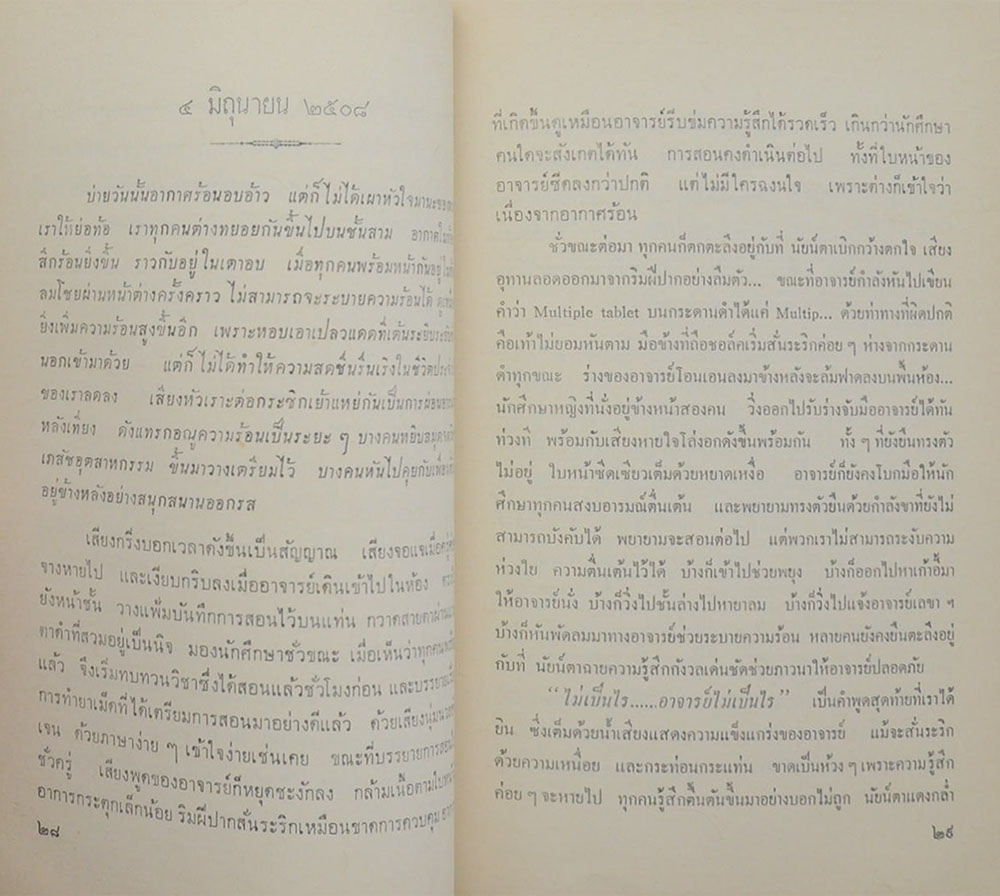 ๔ มิถุนายน ๒๕๐๘
บ่ายวันนั้นอากาศร้อนอบอ้าว แต่ก็ไม่ได้เผาหัวใจมานะของ
เราให้ย่อท้อ เราทุกคนต่างทยอยกันขึ้นไปบนชั้นสาม
สึกร้อนยิ่งขึ้น ราวกับอยู่ในเตาอบ เมื่อทุกคนพร้อมหน้ากันอยู่
ลมโชยผ่านหน้าต่างครั้งคราว ไม่สามารถจะระบายความร้อนได้
ยิ่งเพิ่มความร้อนสูงขึ้นอีก เพราะหอบเอาเปลวแดดที่เต้นระยิบ
นอกเข้ามาด้วย แต่ก็ไม่ได้ทำให้ความสดชื่นรื่นเริงในชีวิต
ของเราลดลง เสียงหัวเราะต่อกระซิกเย้าแหย่กันเป็นการ
หลังเที่ยง ดังแทรกอณูความร้อนเป็นระยะ ๆ บางคนหยิบ
เภสัชอุตสาหกรรม ขึ้นมาวางเตรียมไว้ บางคนหันไปคุยกับ
อยู่ข้างหลังอย่างสนุกสนานออกรส
เสียงกริ่งบอกเวลาดังขึ้นเป็นสัญญาณ เสียงจอแจเมื่อครู่
จางหายไป และเงียบกริบลงเมื่ออาจารย์เดินเข้าไปในห้อง
ยังหน้าชั้น วางแฟ้มบันทึกการสอนไว้บนแท่น กวาดสายตาผ่าน
ตาดำที่สวมอยู่เป็นนิจ มองนักศึกษาชั่วขณะ เมื่อเห็นว่าทุกคน
แล้ว จึงเริ่มทบทวนวิชาซึ่งได้สอนแล้วชั่วโมงก่อน และบรรยาย
การทำยาเม็ดที่ได้เตรียมการสอนมาอย่างดีแล้ว ด้วยเสียงนุ่ม
เจน ด้วยภาษาง่าย ๆ เข้าใจง่ายเช่นเคย ขณะที่บรรยายการสอน
ชั่วครู่ เสียงพูดของอาจารย์ก็หยุดชะงักลง กล้ามเนื้อตามใบหน้า
อาการกระตุกเล็กน้อย ริมฝีปากสั่นระริกเหมือนขาดการควบคุม
๒๘
ที่เกิดขึ้นดูเหมือนอาจารย์รีบข่มความรู้สึกได้รวดเร็ว เกินกว่านักศึกษา
คนใดจะสังเกตได้ทัน การสอนคงดำเนินต่อไป ทั้งที่ใบหน้าของ
อาจารย์ซีดลงกว่าปกติ แต่ไม่มีใครฉงนใจ เพราะต่างก็เข้าใจว่า
เนื่องจากอากาศร้อน
ชั่วขณะต่อมา ทุกคนก็ตกตะลึงอยู่กับที่ นัยน์ตาเบิกกว้างตกใจ เสียง
อุทานลอดออกมาจากริมฝีปากอย่างลืมตัว... ขณะที่อาจารย์กำลังหันไปเขียน
คำว่า Multiple tablet บนกระดานดำได้แค่ Multip... ด้วยท่าทางที่ผิดปกติ
คือเท้าไม่ยอมหันตาม มือข้างที่ถือชอล์คเริ่มสั่นระริกค่อย ๆ ห่างจากกระดาน
ดำทุกขณะ ร่างของอาจารย์โอนเอนลงมาข้างหลังจะล้มฟาดลงบนพื้นห้อง...
นักศึกษาหญิงที่นั่งอยู่ข้างหน้าสองคน วิ่งออกไปรับร่างจับมืออาจารย์ได้ทัน
ท่วงที พร้อมกับเสียงหายใจโล่งอกดังขึ้นพร้อมกัน ทั้ง ๆ ที่ยังยืนทรงตัว
ไม่อยู่ ใบหน้าซีดเซียวเต็มด้วยหยาดเหงื่อ อาจารย์ก็ยังคงโบกมือให้นัก
ศึกษาทุกคนสงบอารมณ์ตื่นเต้น และพยายามทรงตัวยืนด้วยกำลังขาที่ยังไม่
สามารถบังคับได้ พยายามจะสอนต่อไป แต่พวกเราไม่สามารถระงับความ
ห่วงใย ความตื่นเต้นไว้ได้ บ้างก็เข้าไปช่วยพยุง บ้างก็ออกไปหาเก้าอี้มา
ให้อาจารย์นั่ง บ้างก็วิ่งไปชั้นล่างไปหายาลม บ้างก็วิ่งไปแจ้งอาจารย์เลขา ฯ
บ้างก็หันพัดลมมาทางอาจารย์ช่วยระบายความร้อน หลายคนยังคงยืนตะลึงอยู่
กับที่ นัยน์ตาฉายความรู้สึกกังวลเด่นชัดช่วยภาวนาให้อาจารย์ปลอดภัย
“ ไม่เป็นไร......อาจารย์ไม่เป็นไร ” เป็นคำพูดสุดท้ายที่เราได้
ยิน ซึ่งเต็มด้วยน้ำเสียงแสดงความแข็งแกร่งของอาจารย์ แม้จะสั่นระริก
ด้วยความเหนื่อย และกระท่อนกระแท่น ขาดเป็นห้วง ๆ เพราะความรู้สึก
ค่อย ๆ จะหายไป ทุกคนรู้สึกตื้นตันขึ้นมาอย่างบอกไม่ถูก นัยน์ตาแดงกล่ำ
๒๙